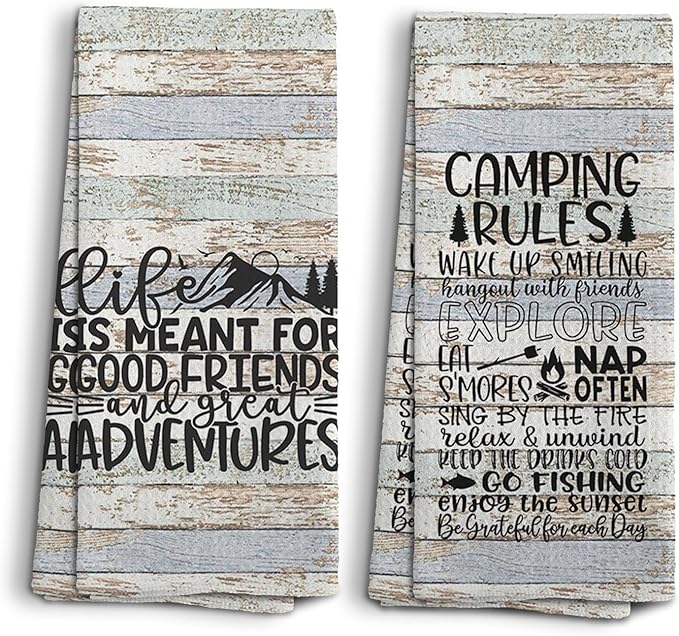 life
IS MEANT FOR
GOOD FRIENDS
and great
ADVENTURES
CAMPING
RULES
WAKE UP SMILING
hangout with friends
EXPLORE
EAT
S'MORES
NAP
OFTEN
SING BY THE FIRE
relax & unwind
KEEP THE DRINKS COLD
GO FISHING
enjoy the sunset
Be Grateful for each Day